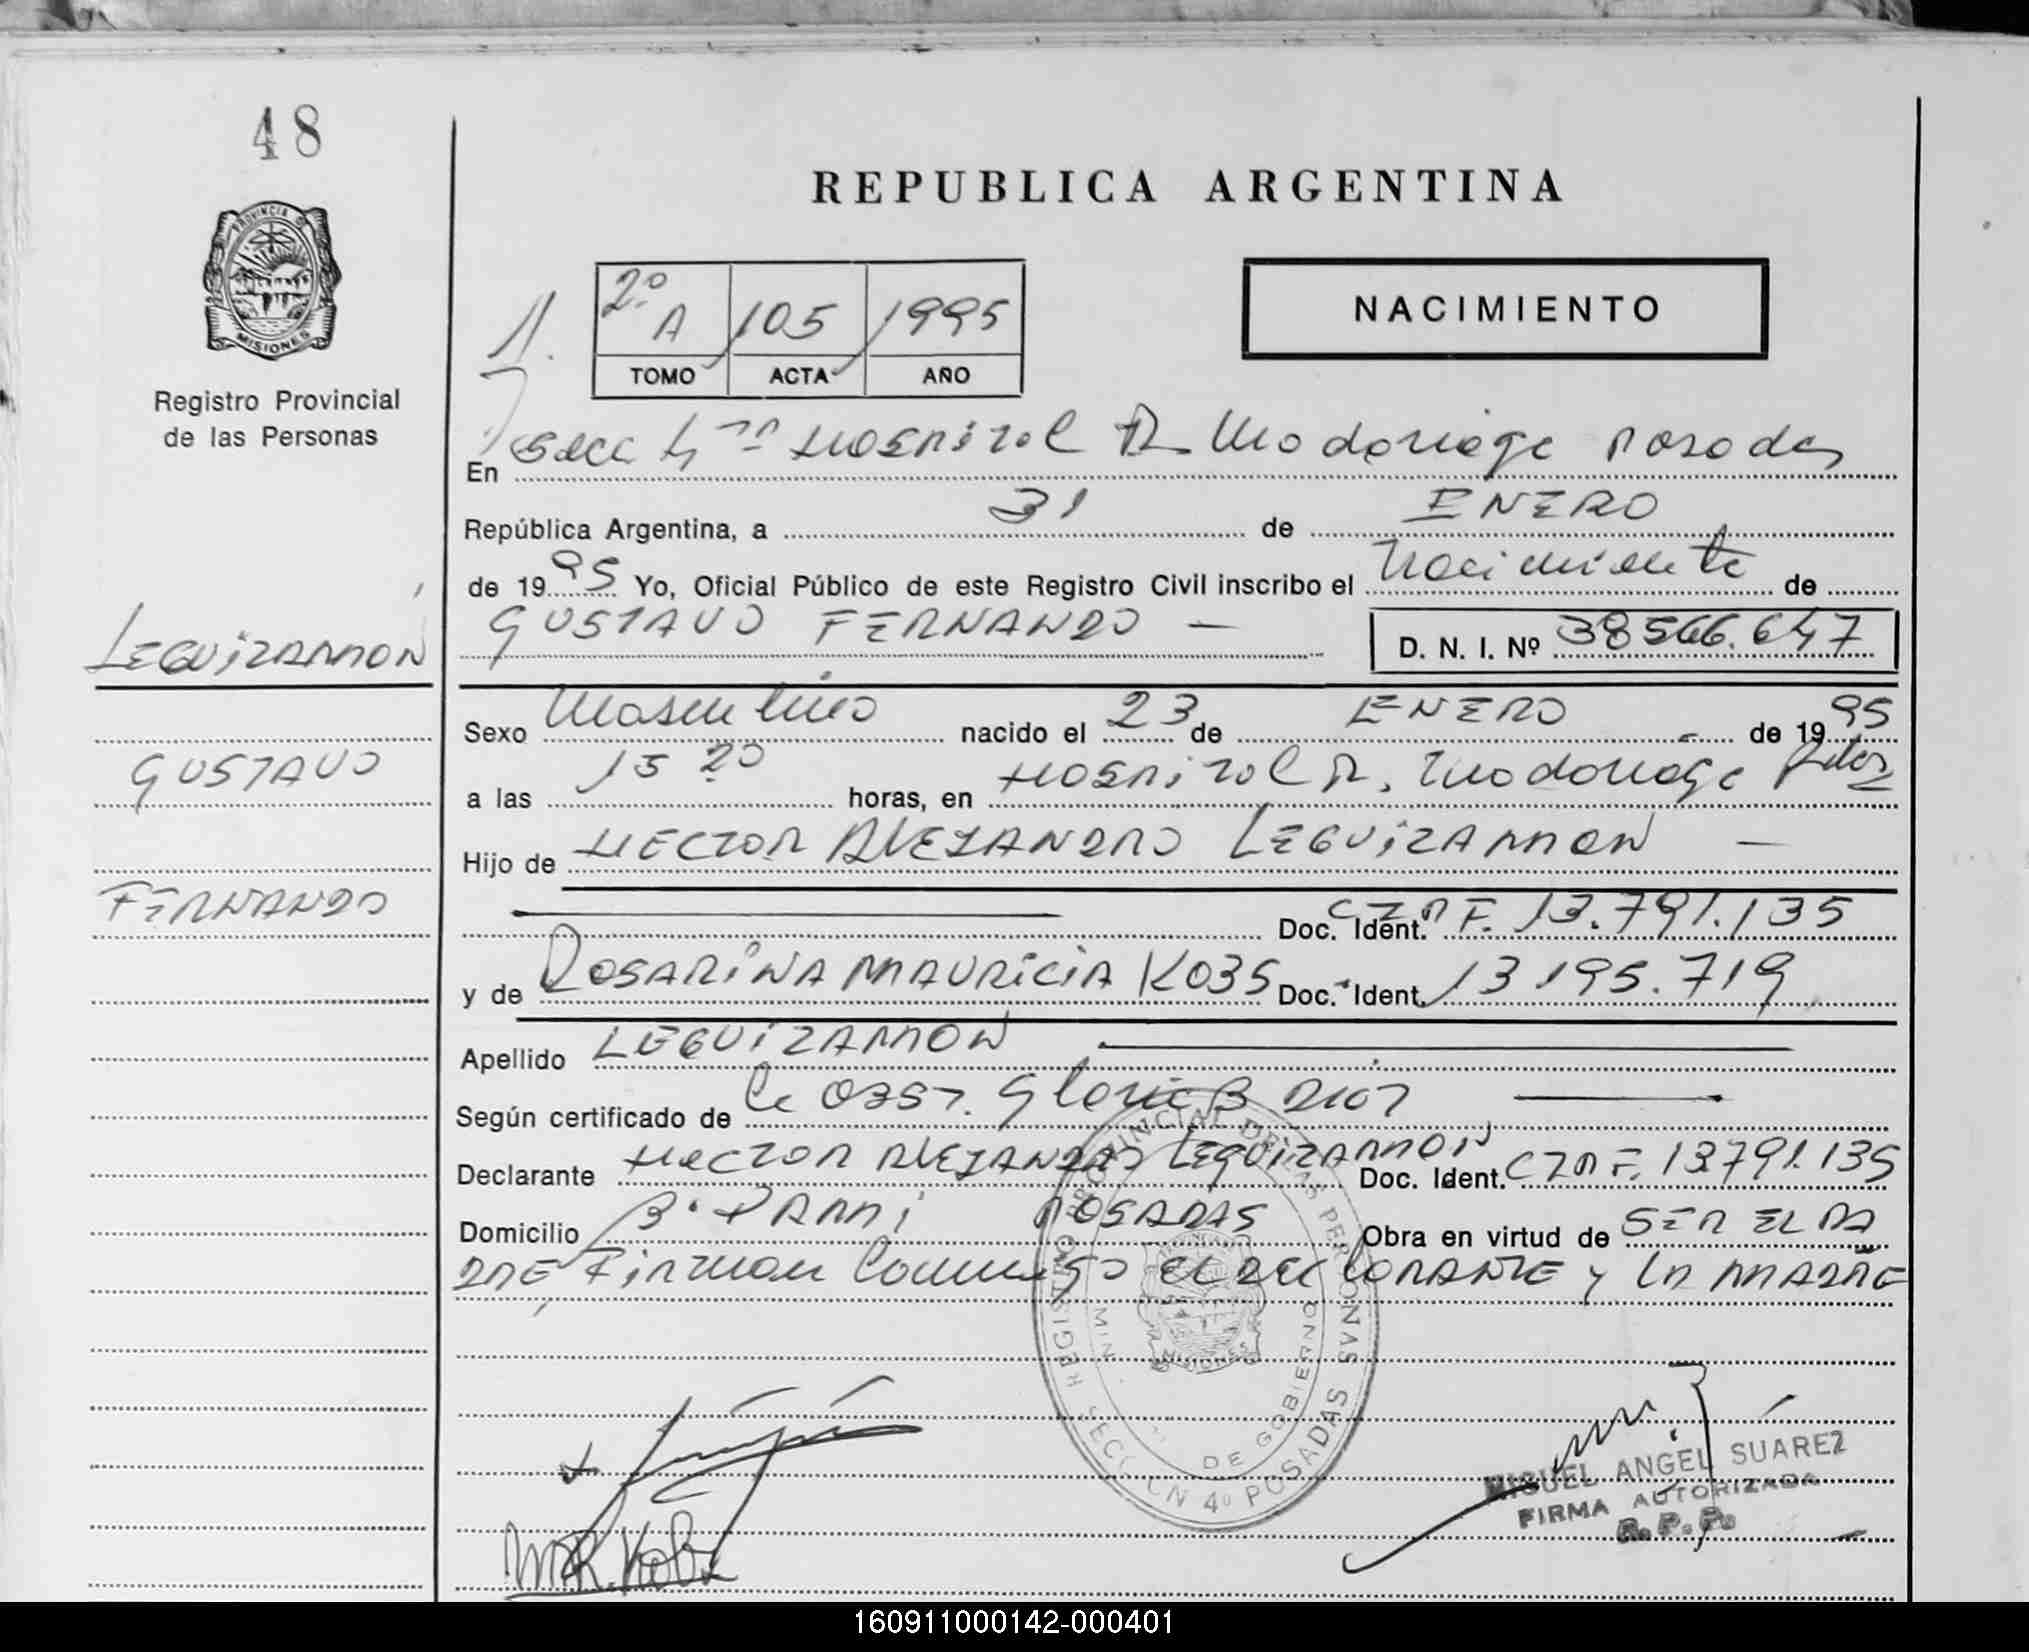 48
REPUBLICA ARGENTINA
PROVINCIA D
MISIONES
Registro Provincial
de las Personas
2º A 105 1995
TOMO ACTA AÑO
NACIMIENTO
En Secc 4ta Hospital R. Madariaga Posadas
República Argentina, a 31 de ENERO
de 1995 Yo, Oficial Público de este Registro Civil inscribo el Nacimiento de
GUSTAVO FERNANDO — D. N. I. Nº 38566.647
LEGUIZAMON
GUSTAVO
FERNANDO
Sexo Masculino nacido el 23 de ENERO de 1995
a las 15 20 horas, en HOSPITAL R. Madariaga Pdas
Hijo de HECTOR ALEJANDRO LEGUIZAMON —
Doc. Ident. F. 13.791.135
y de ROSARINA MAURICIA KOBS Doc. Ident. 13 195.719
Apellido LEGUIZAMON
Según certificado de la OBST. Gloria B
Declarante HECTOR ALEJANDRO LEGUIZAMON Doc. Ident. F. 13791.135
Domicilio Bº POSADAS Obra en virtud de SER EL PA
DRE, Firman Conmigo EL DECLARANTE y LA MADRE
REGISTRO PROVINCIAL DE LAS PERSONAS
MIN DE GOBIERNO
MISIONES
SECCION 4º POSADAS
M.R. Kobs
MIGUEL ANGEL SUAREZ
FIRMA AUTORIZADA
R. P. P.
160911000142-000401